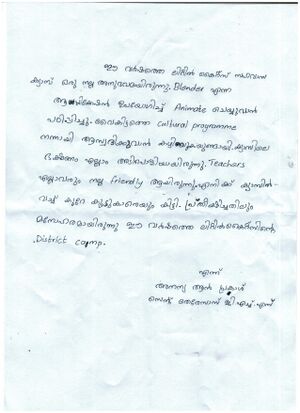 ഈ വർഷത്തെ ലിറ്റിൽ കൈറ്റ്സ് സഹവാസ
ക്യാമ്പ് ഒരു നല്ല അനുഭവമായിരുന്നു. Blender എന്ന
ആപ്ലിക്കേഷൻ ഉപയോഗിച്ച് Animate ചെയ്യുവാൻ
പഠിപ്പിച്ചു. വൈകിട്ടത്തെ cultural programme
നന്നായി ആസ്വദിക്കുവാൻ കഴിയുകയുണ്ടായി. ക്യാമ്പിലെ
ഭക്ഷണം എല്ലാം അടിപൊളിയായിരുന്നു. Teachers
എല്ലാവരും നല്ല friendly ആയിരുന്നു. എനിക്ക് ക്യാമ്പിൽ
വച്ച് കുറേ കൂട്ടുകാരെയും കിട്ടി. പ്രതീക്ഷിച്ചതിലും
മനോഹരമായിരുന്നു ഈ വർഷത്തെ ലിറ്റിൽകൈറ്റ്സിന്റെ
District camp.
എന്ന്
അനന്യ ആൻ പ്രകാശ്
സെന്റ് തെരേസാസ് ജി.എച്ച്.എസ്